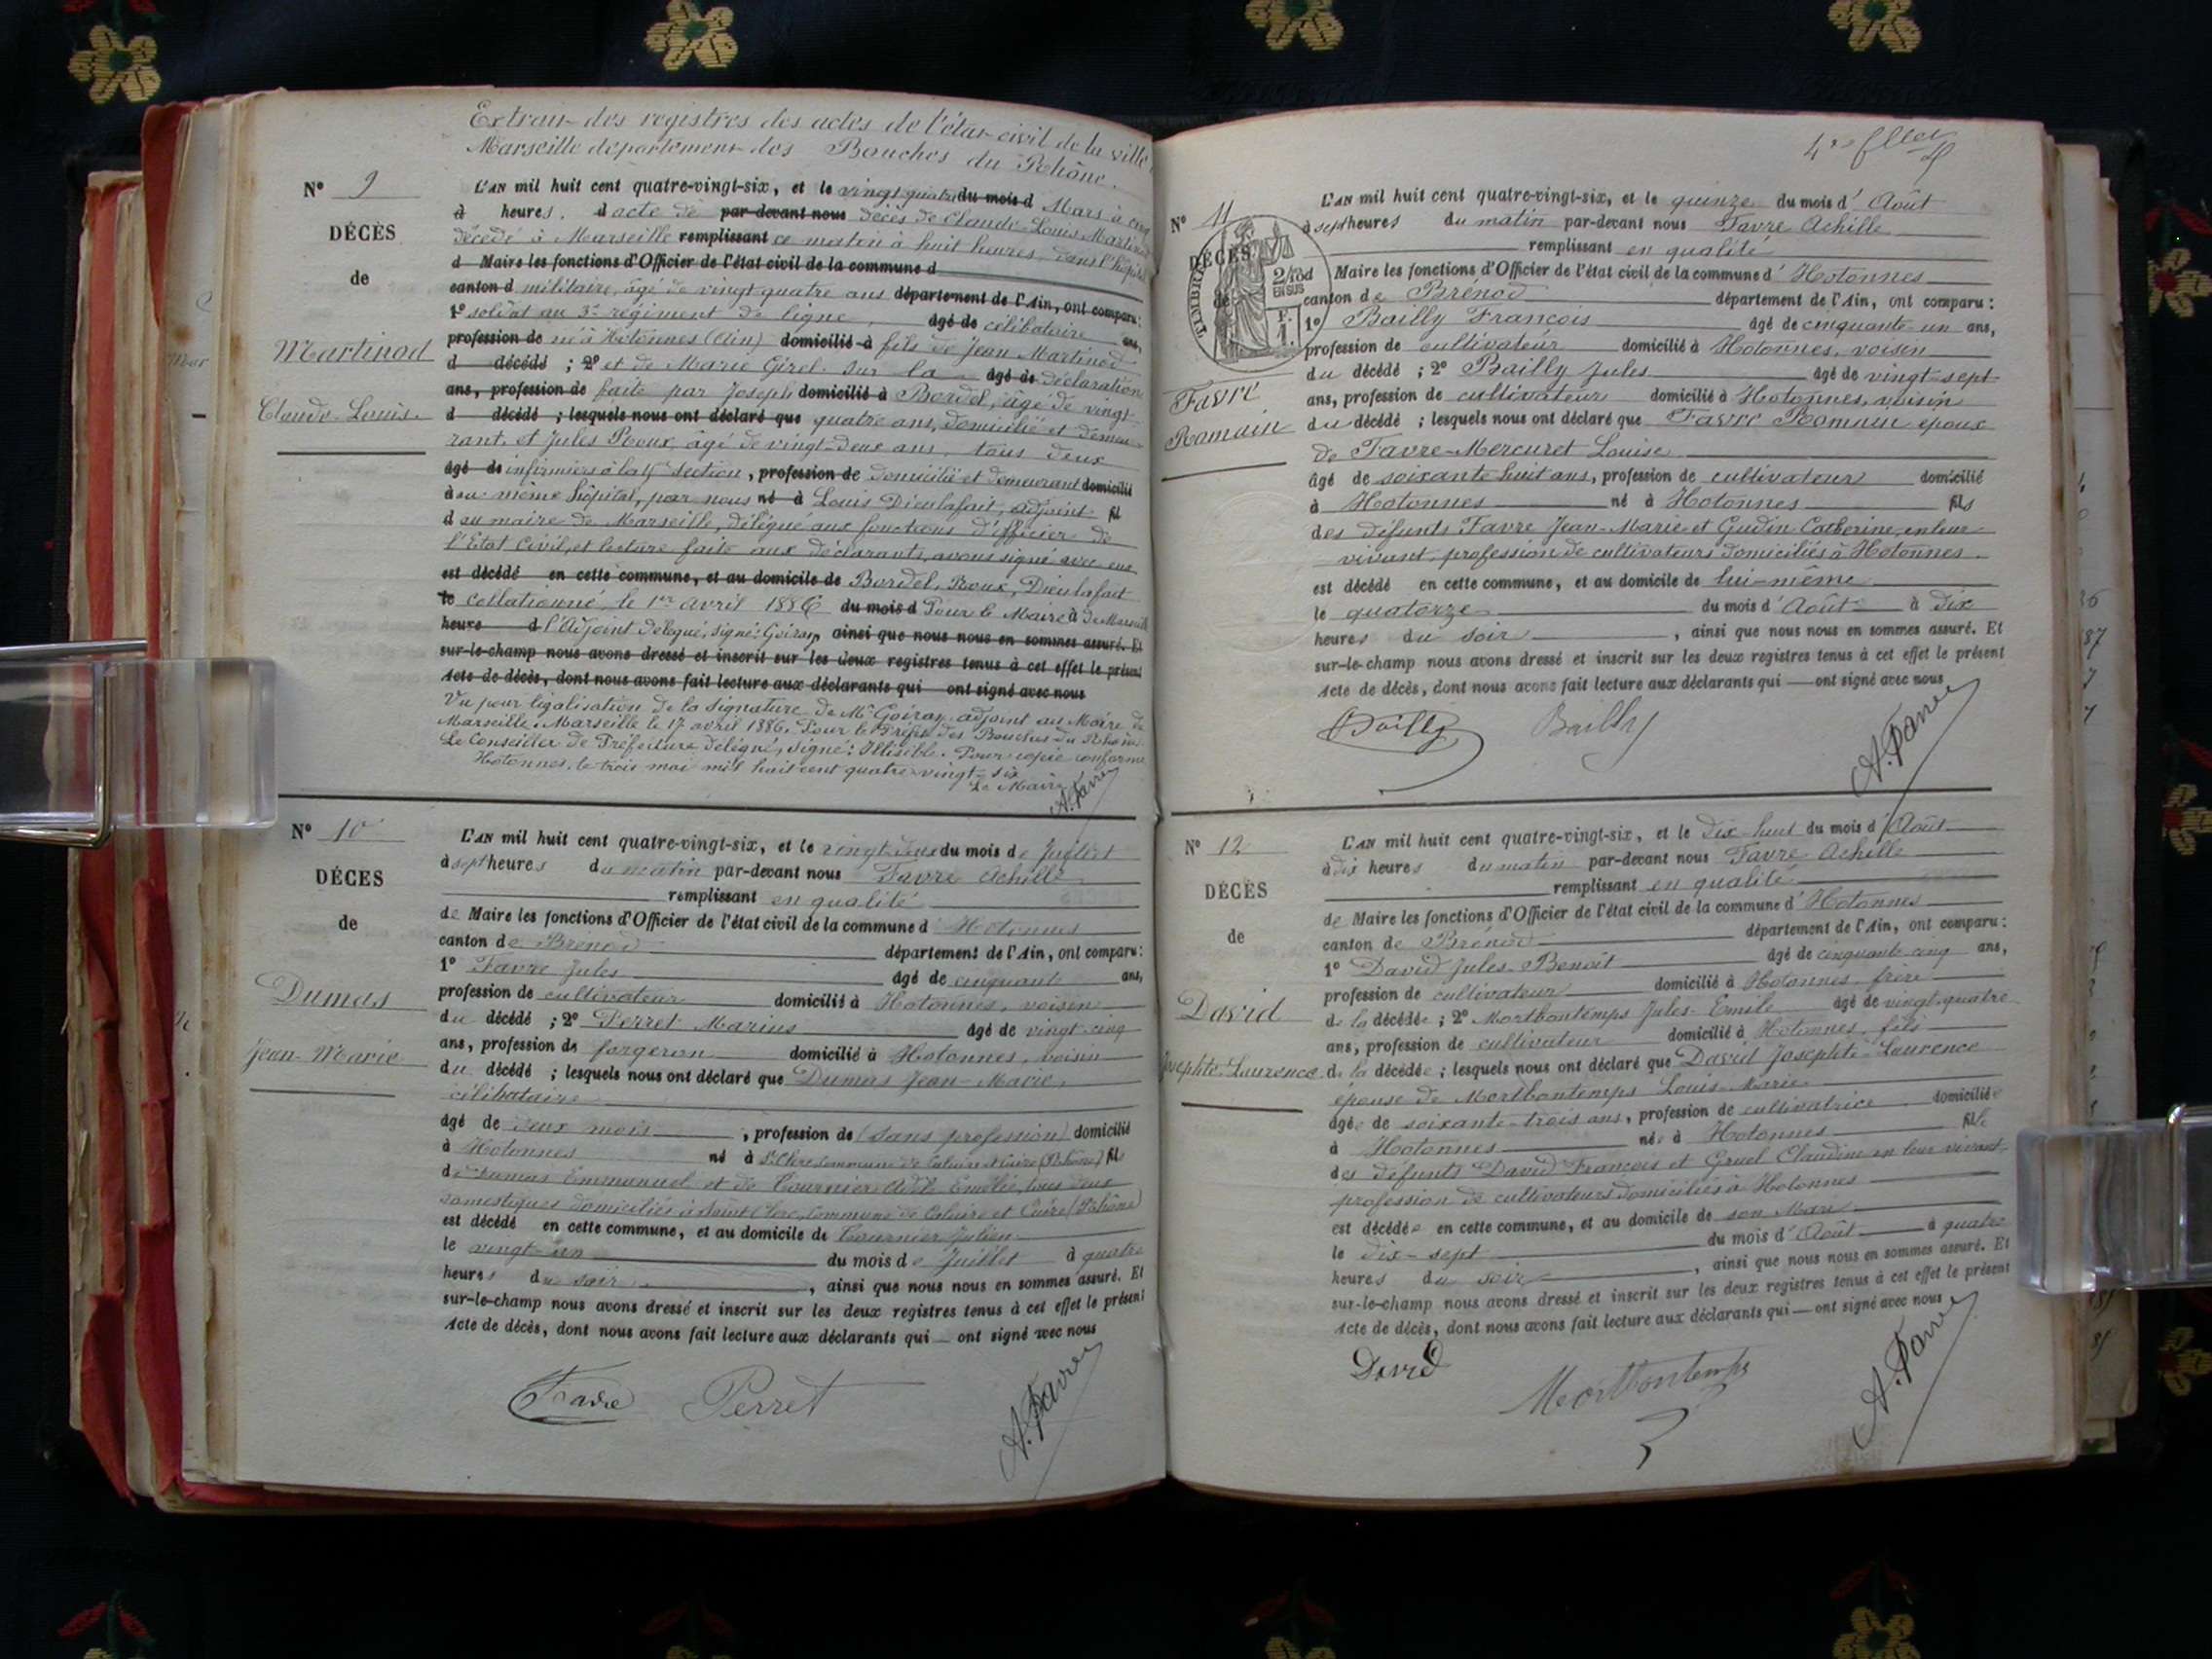 Extrait des registres des actes de l'état civil de la ville
Marseille département des Bouches du Rhône.
N° 9
DÉCÈS
de
Martinod
Claude-Louis.
L'AN mil huit cent quatre-vingt-six, et le vingt quatre du mois d Mars à cinq
à heures. d acte de par-devant nous décès de Claude-Louis Martinod
décédé à Marseille remplissant ce matin à huit heures, dans l'hôpital
d Maire les fonctions d'Officier de l'état civil de la commune d
canton d militaire, âgé de vingt quatre ans département de l'Ain, ont comparu:
1° soldat au 3e régiment de ligne, âgé de célibataire ans,
profession de né à Hotonnes (Ain) domicilié à fils de Jean Martinod
d décédé ; 2° et de Marie Girel. Sur la âgé de déclaration
ans, profession de faite par Joseph domicilié à Bordel, âgé de vingt
d décédé ; lesquels nous ont déclaré que quatre ans, domicilié et demeu-
rant, et Jules Roux, âgé de vingt-deux ans, tous deux
âgé de infirmiers à la section, profession de domicilié et demeurant domicilié
à au même hôpital, par nous né à Louis Dieulafait, adjoint fil
d au maire de Marseille, délégué aux fonctions d'officier de
l'Etat Civil, et lecture faite aux déclarants, avons signé avec eux
est décédé en cette commune, et au domicile de Bordel, Roux, Dieulafait
le Collationné, le 1er avril 1886 du mois d Pour le Maire à de Marseille
heure d l'Adjoint délégué, signé: Goiran, ainsi que nous nous en sommes assuré. Et
sur-le-champ nous avons dressé et inscrit sur les deux registres tenus à cet effet le présent
Acte de décès, dont nous avons fait lecture aux déclarants qui ont signé avec nous
Vu pour légalisation de la signature de Mr Goiran adjoint au Maire de
Marseille. Marseille le 17 avril 1886, Pour le Préfet des Bouches du Rhône
Le Conseiller de Préfecture délégué, signé: Illisible. Pour copie conforme
Hotonnes, le trois mai mil huit cent quatre-vingt-six
Le Maire
A. Favre
N° 10
DÉCES
de
Dumas
Jean-Marie
L'AN mil huit cent quatre-vingt-six, et le vingt-deux du mois de Juillet
à sept heures du matin par-devant nous Favre Achille
remplissant en qualité
de Maire les fonctions d'Officier de l'état civil de la commune d' Hotonnes
canton de Brénod département de l'Ain, ont comparu:
1° Favre Jules âgé de cinquante ans,
profession de cultivateur domicilié à Hotonnes, voisin
du décédé ; 2° Perret Marius âgé de vingt-cinq
ans, profession de forgeron domicilié à Hotonnes, voisin
du décédé ; lesquels nous ont déclaré que Dumas Jean-Marie,
célibataire
âgé de deux mois, profession de (sans profession) domicilié
à Hotonnes né à St Clair commune de Caluire et Cuire (Rhône) fils
de Dumas Emmanuel et de Tournier Adèle Emélie, tous deux
domestiques domiciliés à Saint Clair, commune de Caluire et Cuire (Rhône)
est décédé en cette commune, et au domicile de Tournier Julien
le vingt-un du mois de Juillet à quatre
heures du soir, ainsi que nous nous en sommes assuré. Et
sur-le-champ nous avons dressé et inscrit sur les deux registres tenus à cet effet le présent
Acte de décès, dont nous avons fait lecture aux déclarants qui — ont signé avec nous
Favre Perret A. Favre
N° 11
DÉCÈS
de
TIMBRE
2/10 d
EN SUS
Favre
Romain
L'AN mil huit cent quatre-vingt-six, et le quinze du mois d' Août
à sept heures du matin par-devant nous Favre Achille
remplissant en qualité
Maire les fonctions d'Officier de l'état civil de la commune d' Hotonnes
canton de Brénod département de l'Ain, ont comparu:
1° Bailly François âgé de cinquante-un ans,
profession de cultivateur domicilié à Hotonnes, voisin
du décédé ; 2° Bailly Jules âgé de vingt-sept
ans, profession de cultivateur domicilié à Hotonnes, voisin
du décédé ; lesquels nous ont déclaré que Favre Romain époux
de Favre-Mercuret Louise
âgé de soixante-huit ans, profession de cultivateur domicilié
à Hotonnes né à Hotonnes fils
des défunts Favre Jean-Marie et Gudin Catherine, en leur
vivant, profession de cultivateurs domiciliés à Hotonnes.
est décédé en cette commune, et au domicile de lui-même
le quatorze du mois d' Août à dix
heures du soir, ainsi que nous nous en sommes assuré. Et
sur-le-champ nous avons dressé et inscrit sur les deux registres tenus à cet effet le présent
Acte de décès, dont nous avons fait lecture aux déclarants qui — ont signé avec nous
Bailly Bailly A. Favre
N° 12
DÉCÈS
de
David
Josephte Laurence
L'AN mil huit cent quatre-vingt-six, et le dix-huit du mois d' Août
à dix heures du matin par-devant nous Favre Achille
remplissant en qualité
de Maire les fonctions d'Officier de l'état civil de la commune d' Hotonnes
canton de Brénod département de l'Ain, ont comparu:
1° David Jules-Benoît âgé de cinquante-cinq ans,
profession de cultivateur domicilié à Hotonnes, frère
de la décédée ; 2° Mortbontemps Jules-Emile âgé de vingt-quatre
ans, profession de cultivateur domicilié à Hotonnes, fils
de la décédée ; lesquels nous ont déclaré que David Josephte-Laurence
épouse de Mortbontemps Louis-Marie
âgée de soixante-trois ans, profession de cultivatrice domiciliée
à Hotonnes née à Hotonnes fille
des défunts David François et Gruel Claudine en leur vivant
profession de cultivateurs domiciliés à Hotonnes
est décédée en cette commune, et au domicile de son Mari
le dix-sept du mois d' Août à quatre
heures du soir, ainsi que nous nous en sommes assuré. Et
sur-le-champ nous avons dressé et inscrit sur les deux registres tenus à cet effet le présent
Acte de décès, dont nous avons fait lecture aux déclarants qui — ont signé avec nous
David Mortbontemps A. Favre